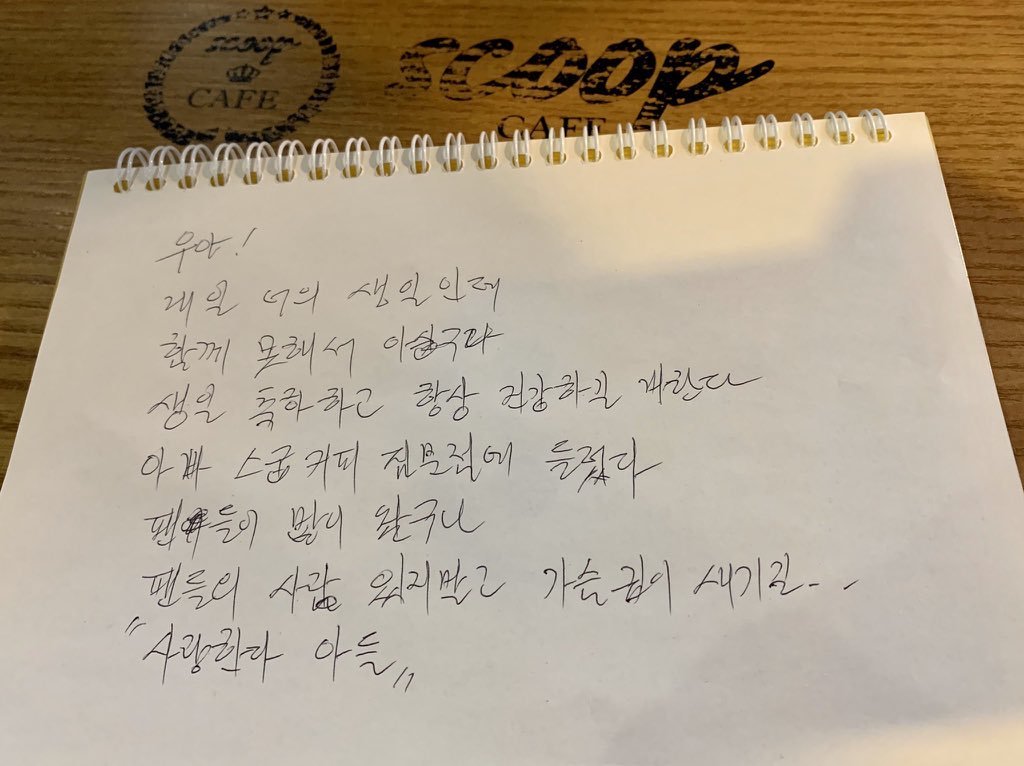 scoop
CAFE
scoop
CAFE
우야!
내일 너의 생일인데
함께 못해서 아쉽구나
생일 축하하고 항상 건강하길 바란다
아빠 스쿱커피 전문점에 들렸다
팬들이 많이 왔구나
팬들의 사랑 잊지말고 가슴깊이 새기길..
"사랑한다 아들"